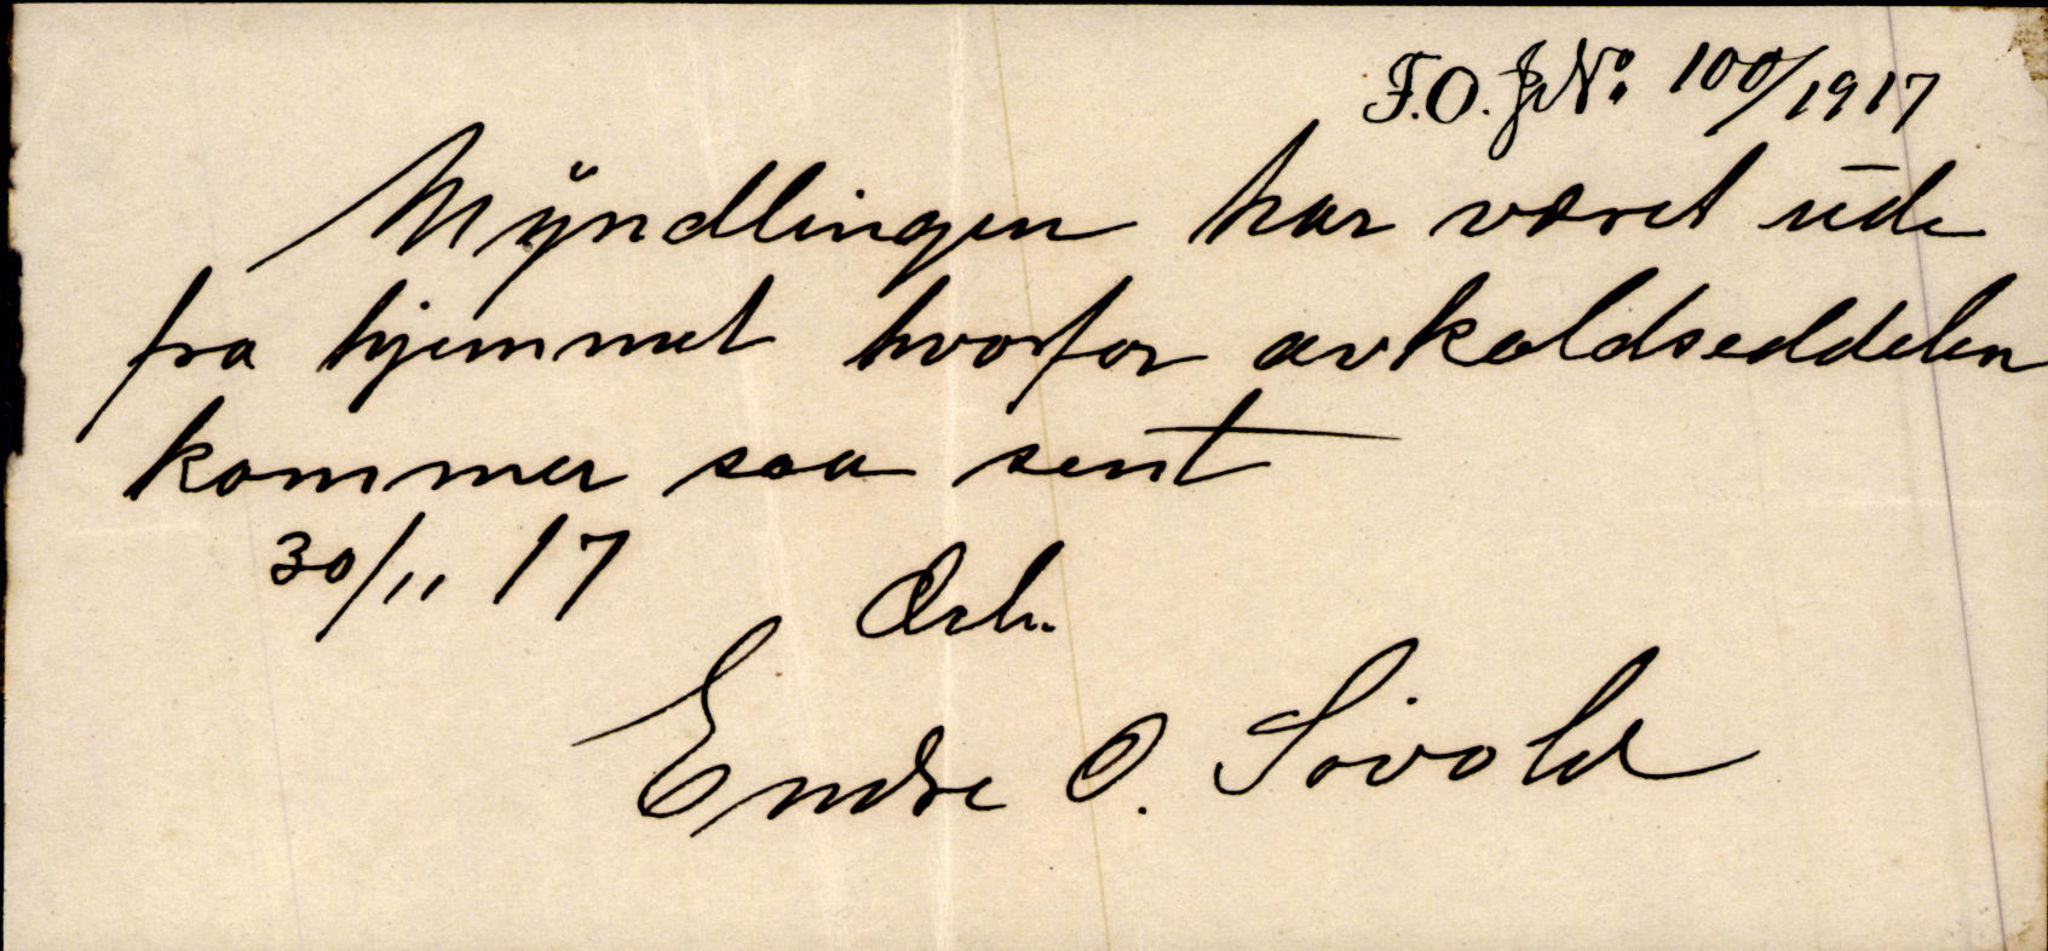 F.O. J.No 100/1917
Myndlingen har været ude
fra hjemmet hvorfor avkaldseddelen
kommer saa sent
30/11 17 Ærb.
Endre O. Sivold